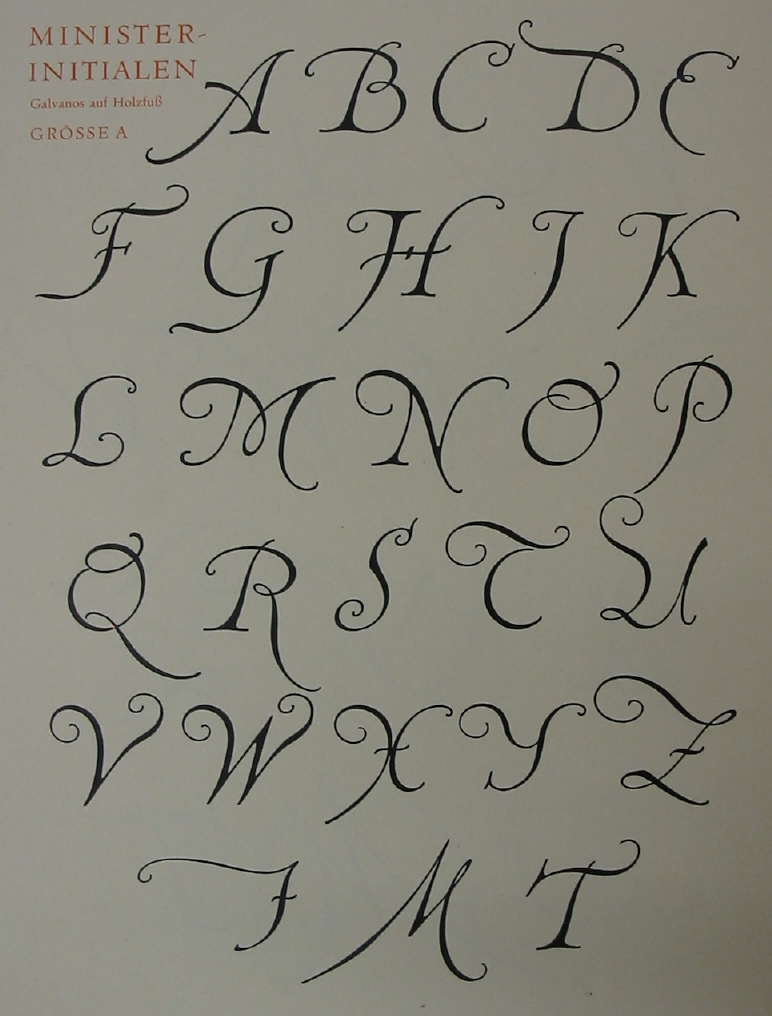 MINISTER-
INITIALEN
Galvanos auf Holzfuß
GRÖSSE A
A B C D E
F G H J K
L M N O P
Q R S T U
V W X Y Z
I M T